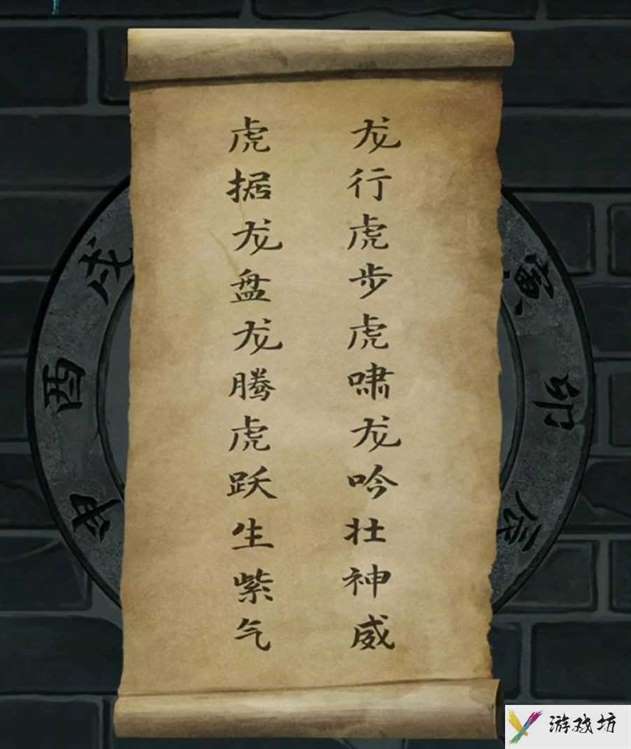 龙行虎步虎啸龙吟壮神威
虎据龙盘龙腾虎跃生紫气
戌
酉
申
寅
卯
辰
游戏坊